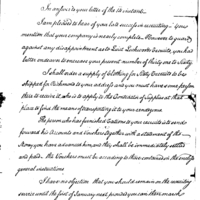 In answer to your letter of the 14 instant.
I am pleased to hear of your good success in recruiting. You
mention that your company is nearly complete. However to guard
against any disappointment as to Lieut. recruits, you had
better endeavor to increase your present number of thirty one to Sixty.
I shall order a supply of Clothing for Sixty Recruits to be
shipped for Richmond to your address and you must have some person
there to receive it, who is to apply to the Contractor of Supplies at that
place to find the means of transporting it to your rendezvous.
The person who has furnished rations to your recruits is to send
forward his Accounts and Vouchers together with a statement of the
Money you have advanced him, and they shall be immediately settled
and paid. the Vouchers must be according to those contained in the
general instructions
I have no objection that you should remain on the recruiting
service until the first of January next provided you can then march